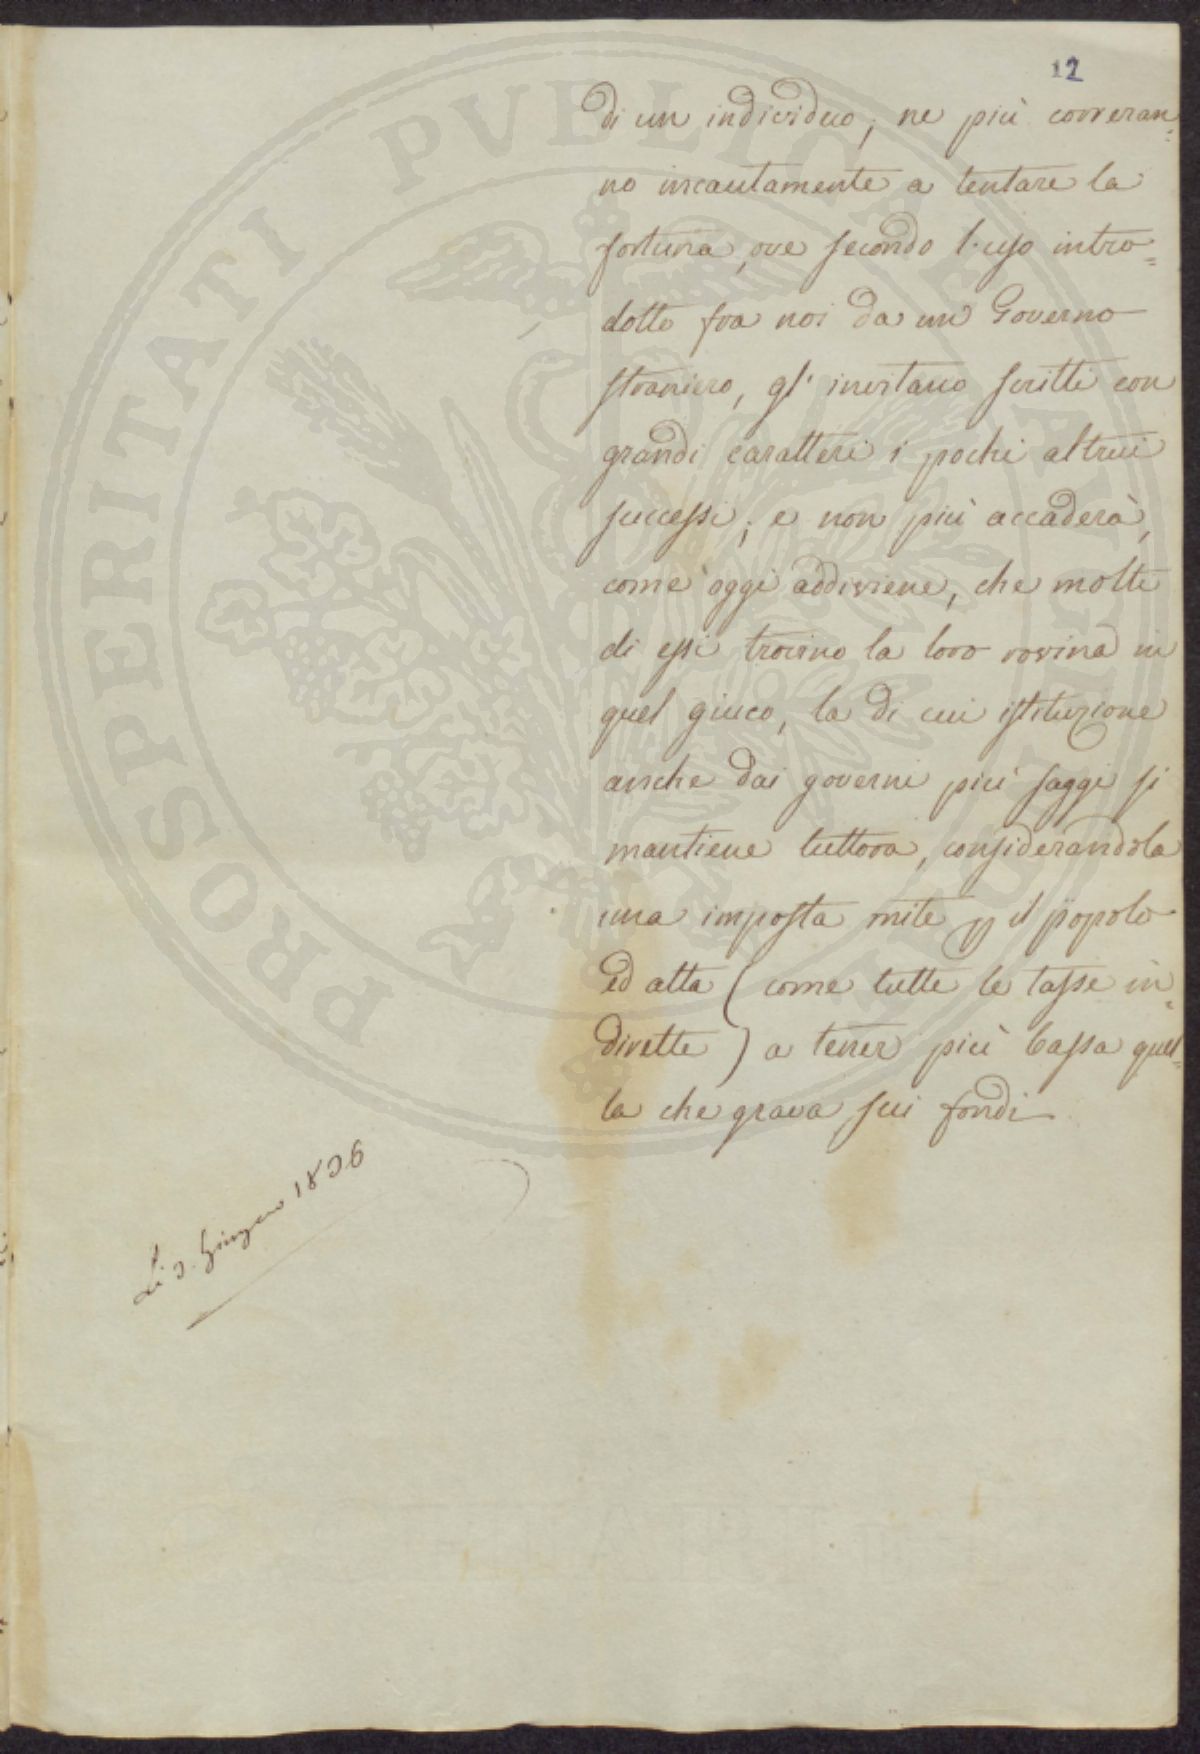 12
di un individuo; ne più correran=
no incautamente a tentare la
fortuna, ove secondo l'uso intro=
dotto fra noi da un Governo
straniero, gl'invitano scritti con
grandi caratteri i pochi altrui
successi; e non più accaderà,
come oggi addiviene, che molti
di essi trovino la loro rovina in
quel giuco, la di cui istituzione
anche dai governi più saggi si
mantiene tuttora, considerandola
una imposta mite p il popolo
ed atta (come tutte le tasse in=
dirette) a tener più bassa quel=
la che grava sui fondi
Li 2. Giugno 1836
PROSPERITATI PVBLICAE